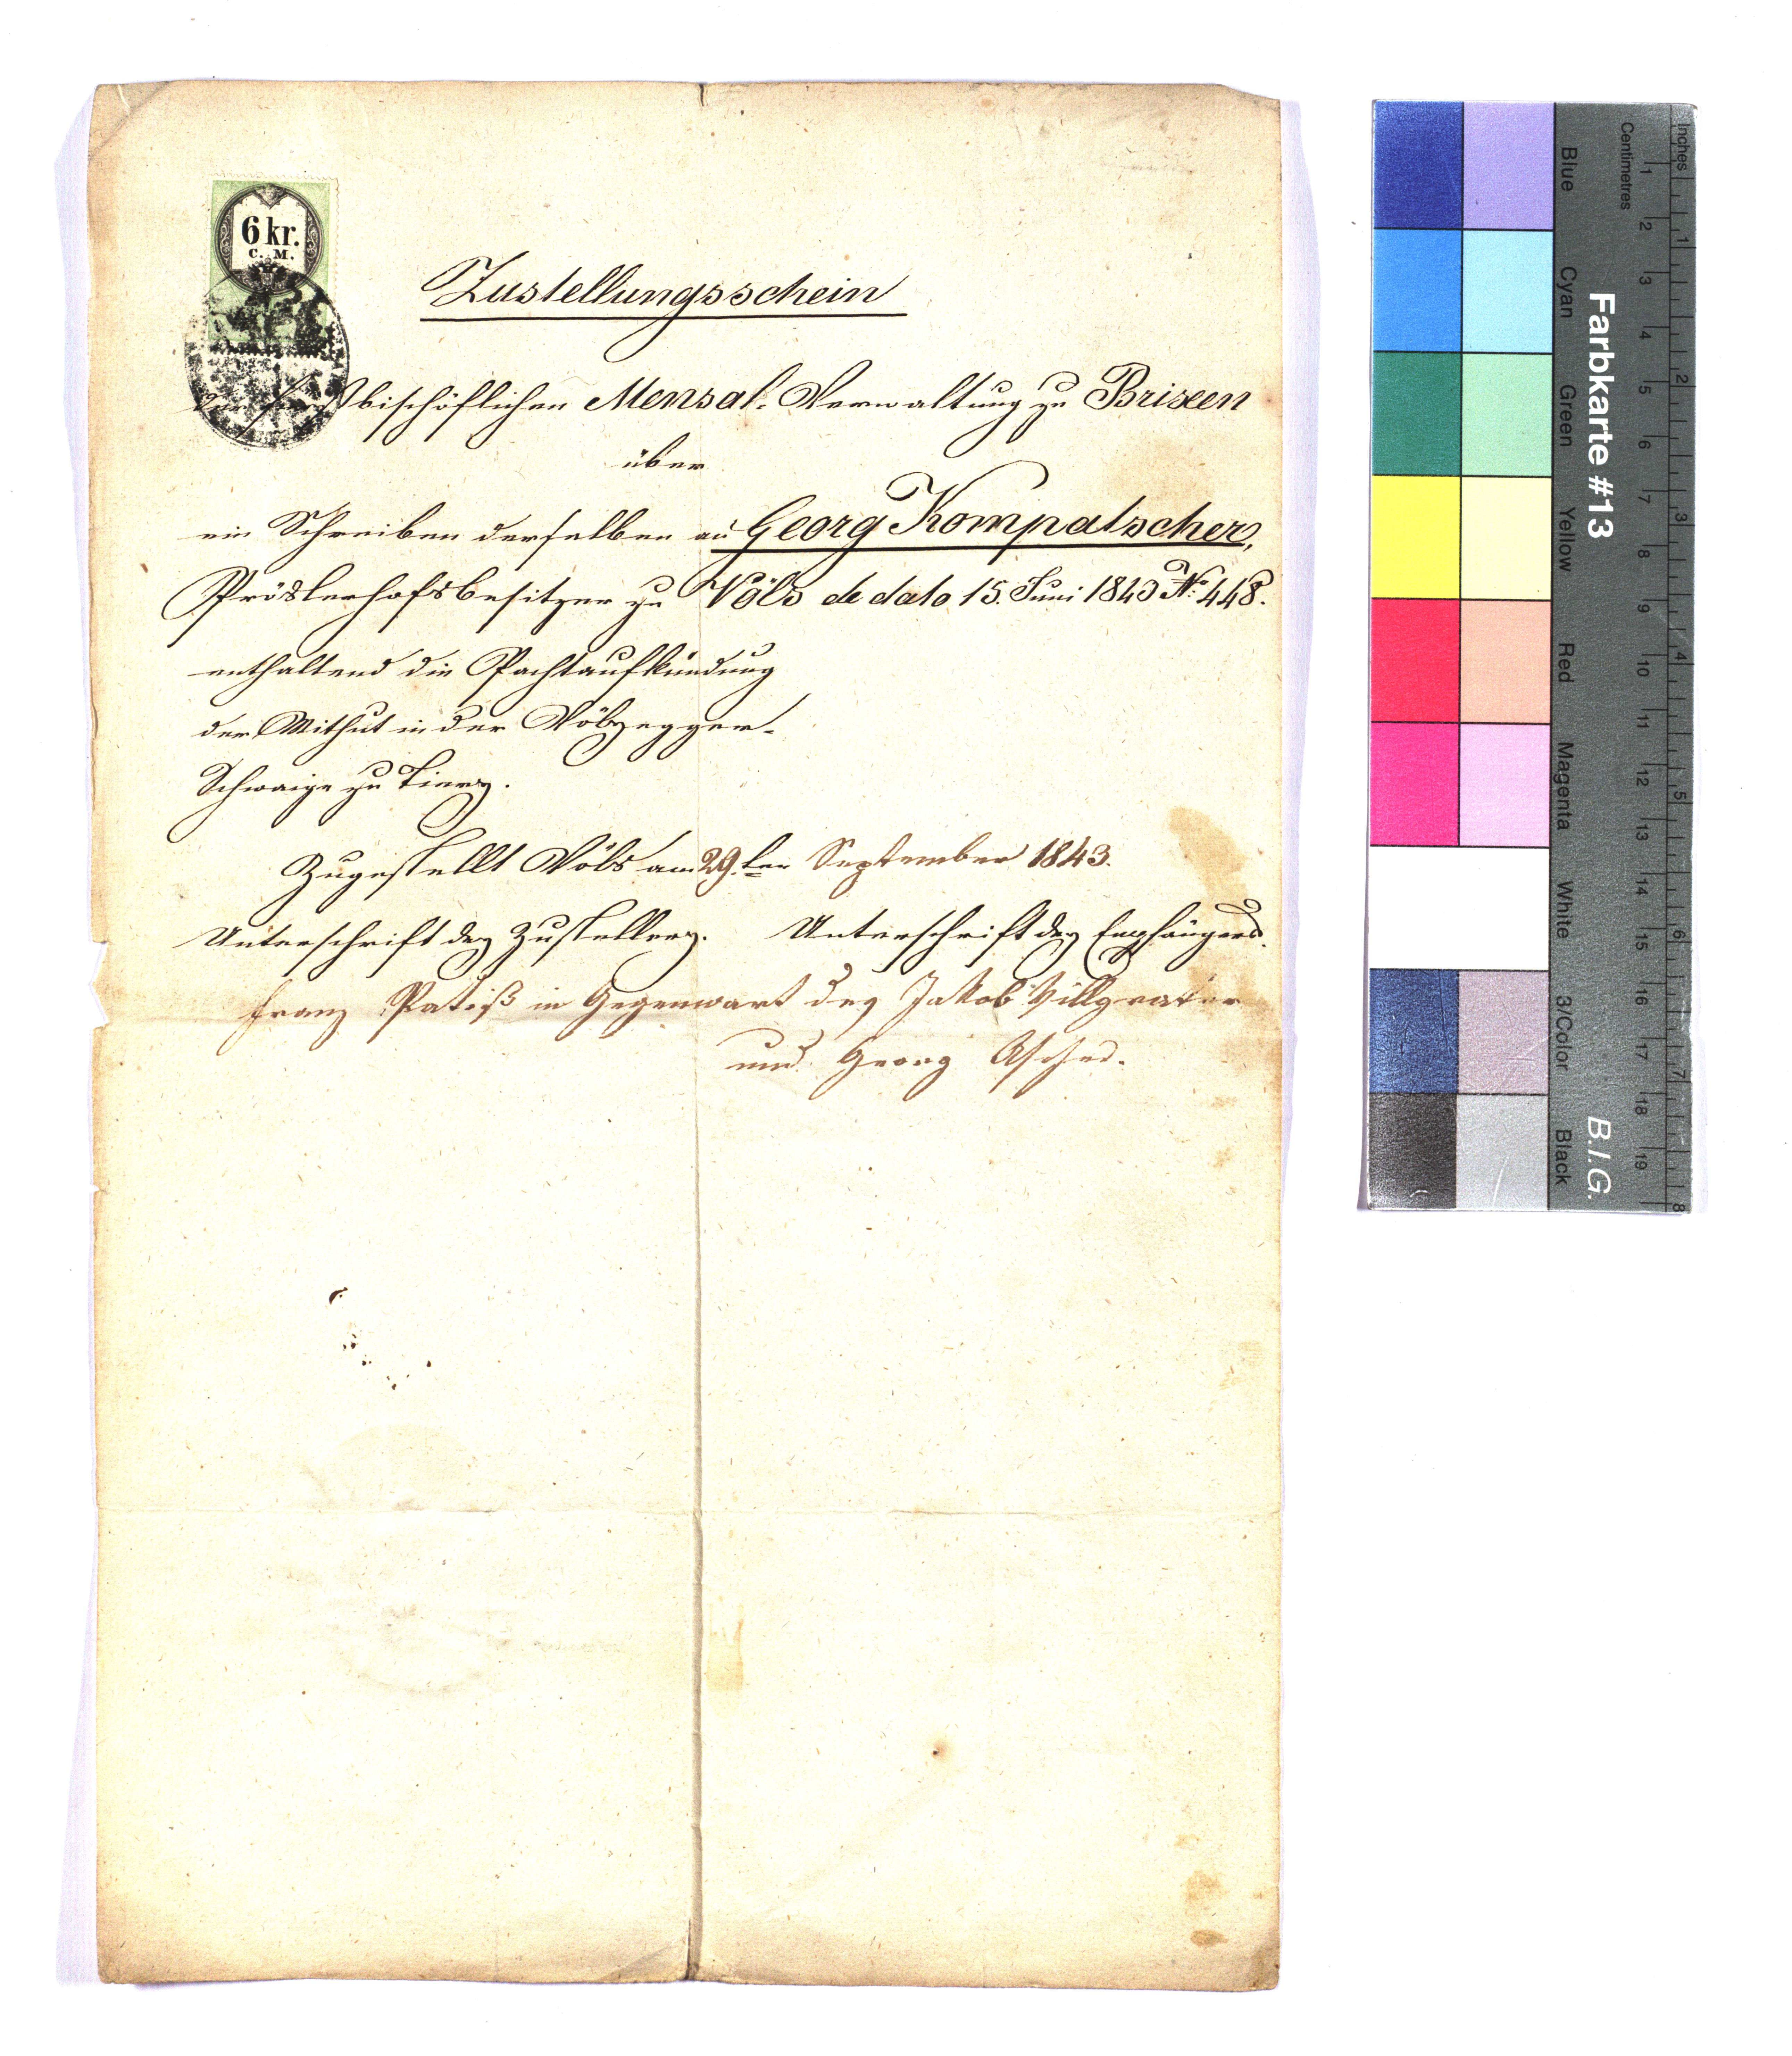 6 kr.
C. M.
Zustellungsschein
der fürstbischöflichen Mensal-Verwaltung zu Brixen
über
ein Schreiben derselben an Georg Kompatscher,
Pröslerhofsbesitzer zu Völs de dato 15. Juni 1843 No 448.
enthaltend die Pachtaufkündung
der Mithut in der Völsegger-
Schwaige zu Tiers.
Zugestellt Völs am 29.ten September 1843.
Unterschrift des Zustellers. Unterschrift des Empfängers.
Franz Patiß in Gegenwart des Jakob Villgrater
und Georg Ascher.
Farbkarte #13
B.I.G.
Inches
Centimetres
1 2 3 4 5 6 7 8 9 10 11 12 13 14 15 16 17 18 19
1 2 3 4 5 6 7 8
Blue
Cyan
Green
Yellow
Red
Magenta
White
3/Color
Black